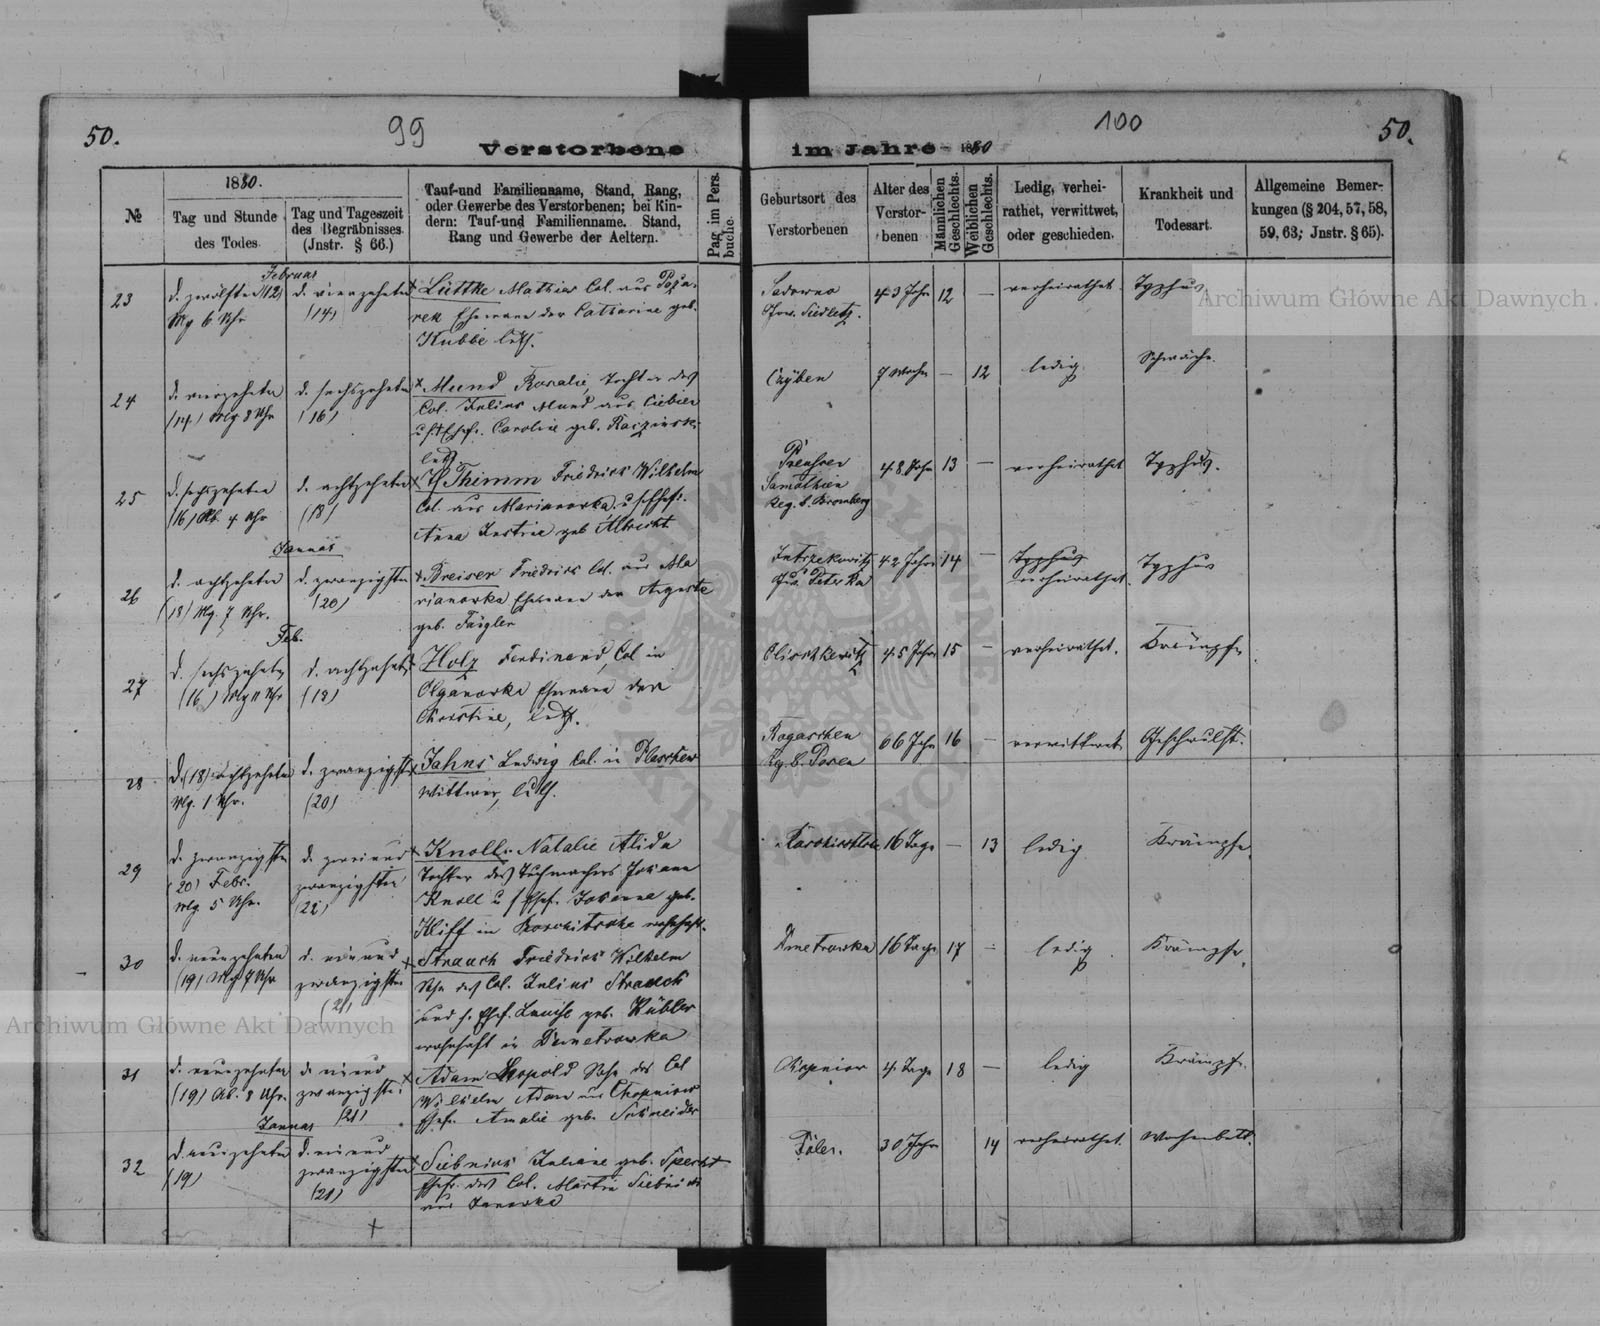 50.
99
Verstorbene
100
50.
im Jahre 1880
№
1880.
Tag und Stunde
des Todes.
Tag und Tageszeit
des Begräbnisses.
(Jnstr. § 66.)
Tauf-und Familienname, Stand, Rang,
oder Gewerbe des Verstorbenen; bei Kin-
dern: Tauf-und Familienname. Stand,
Rang und Gewerbe der Aeltern.
Pag. im Pers.
buche.
Geburtsort des
Verstorbenen
Alter des
Verstor-
benen
Männlichen
Geschlechts.
Weiblichen
Geschlechts.
Ledig, verhei-
rathet, verwittwet,
oder geschieden.
Krankheit und
Todesart.
Allgemeine Bemer-
kungen (§ 204, 57, 58,
59, 63; Jnstr. § 65).
Februar
23
d. zwölften (12)
Mg 6 Uhr
d. vierzehnten
(14)
Lüttke Mathias Col. aus
Ehemann der Catharine geb.
Kubbe
Sadowno
Gouv. Siedletz.
43 Jahr
12
–
verheirathet.
Typhus.
24
d. vierzehnten
(14) Mg 8 Uhr
d. sechszehnten
(16)
Mund Rosalie, Tochter des
Col. Julius Mund aus
u. s. Ehefr. Caroline geb. Raczinski
7 Woch
–
12
ledig
Schwäche.
25
d. sechszehnten
(16) Ab. 4 Uhr
d. achtzehnten
(18)
Thimm Friedrich Wilhelm
Col. aus Marianowka u. s. Ehefr.
Anna Justine geb. Albrecht
Reg. b. Bromberg
48 Jahr
13
–
verheirathet
Typhus.
Januar
26
d. achtzehnten
(18) Mg. 7 Uhr.
d. zwanzigsten
(20)
Breiser Friedrich Col. aus Ma
rianowka Ehemann der Auguste
geb.
42 Jahre
14
–
Typhus
verheirathet.
Typhus
Feb.
27
d. sechszehnten
(16) Mg 11 Uhr
d. achtzehnten
(18)
Holz Ferdinand, Col in
Olganowka Ehemann der
Christine,
45 Jahr
15
–
verheirathet.
Krämpfe
28
d. (18) achtzehnten
Mg. 1 Uhr.
d. zwanzigsten
(20)
Jahns Ludwig Col. in
Wittwer,
Rogaschen
Rg. b. Posen
66 Jahr
16
–
verwittwet
Geschwulst.
29
d. zwanzigsten
(20) Febr.
Mg. 5 Uhr.
d. zweiund
zwanzigsten
(22)
Knoll Natalie Alida
Tochter des Tuchmachers Johann
Knoll u. s. Ehef. Johanne geb.
Kliff in wohnhaft.
16 Tage
–
13
ledig
Krämpfe.
30
d. neunzehnten
(19) Mg 7 Uhr
d. einund
zwanzigsten
(21)
Strauch Friedrich Wilhelm
Sohn des Col. Julius Strauch
und s. Ehef. Louise geb. Kübler
wohnhaft in Dmetrowka
Dmetrowka
16 Tage
17
–
ledig
Krämpfe
31
d. neunzehnten
(19) Ab. 8 Uhr.
d. einund
zwanzigsten
(21)
Adam Leopold Sohn des Col
Wilhelm Adam aus Chopniow
Ehefr. Amalie geb. Schneider
Chopniow
4 Tage
18
–
ledig
Krämpfe.
Januar
32
d. neunzehnten
(19)
d. einund
zwanzigsten
(21)
Siebnius Juliane geb. Specht
Ehefr. des Col. Martin
aus Janowka
30 Jahr
14
verheirathet.
Wochenbett.
Archiwum Główne Akt Dawnych
Archiwum Główne Akt Dawnych